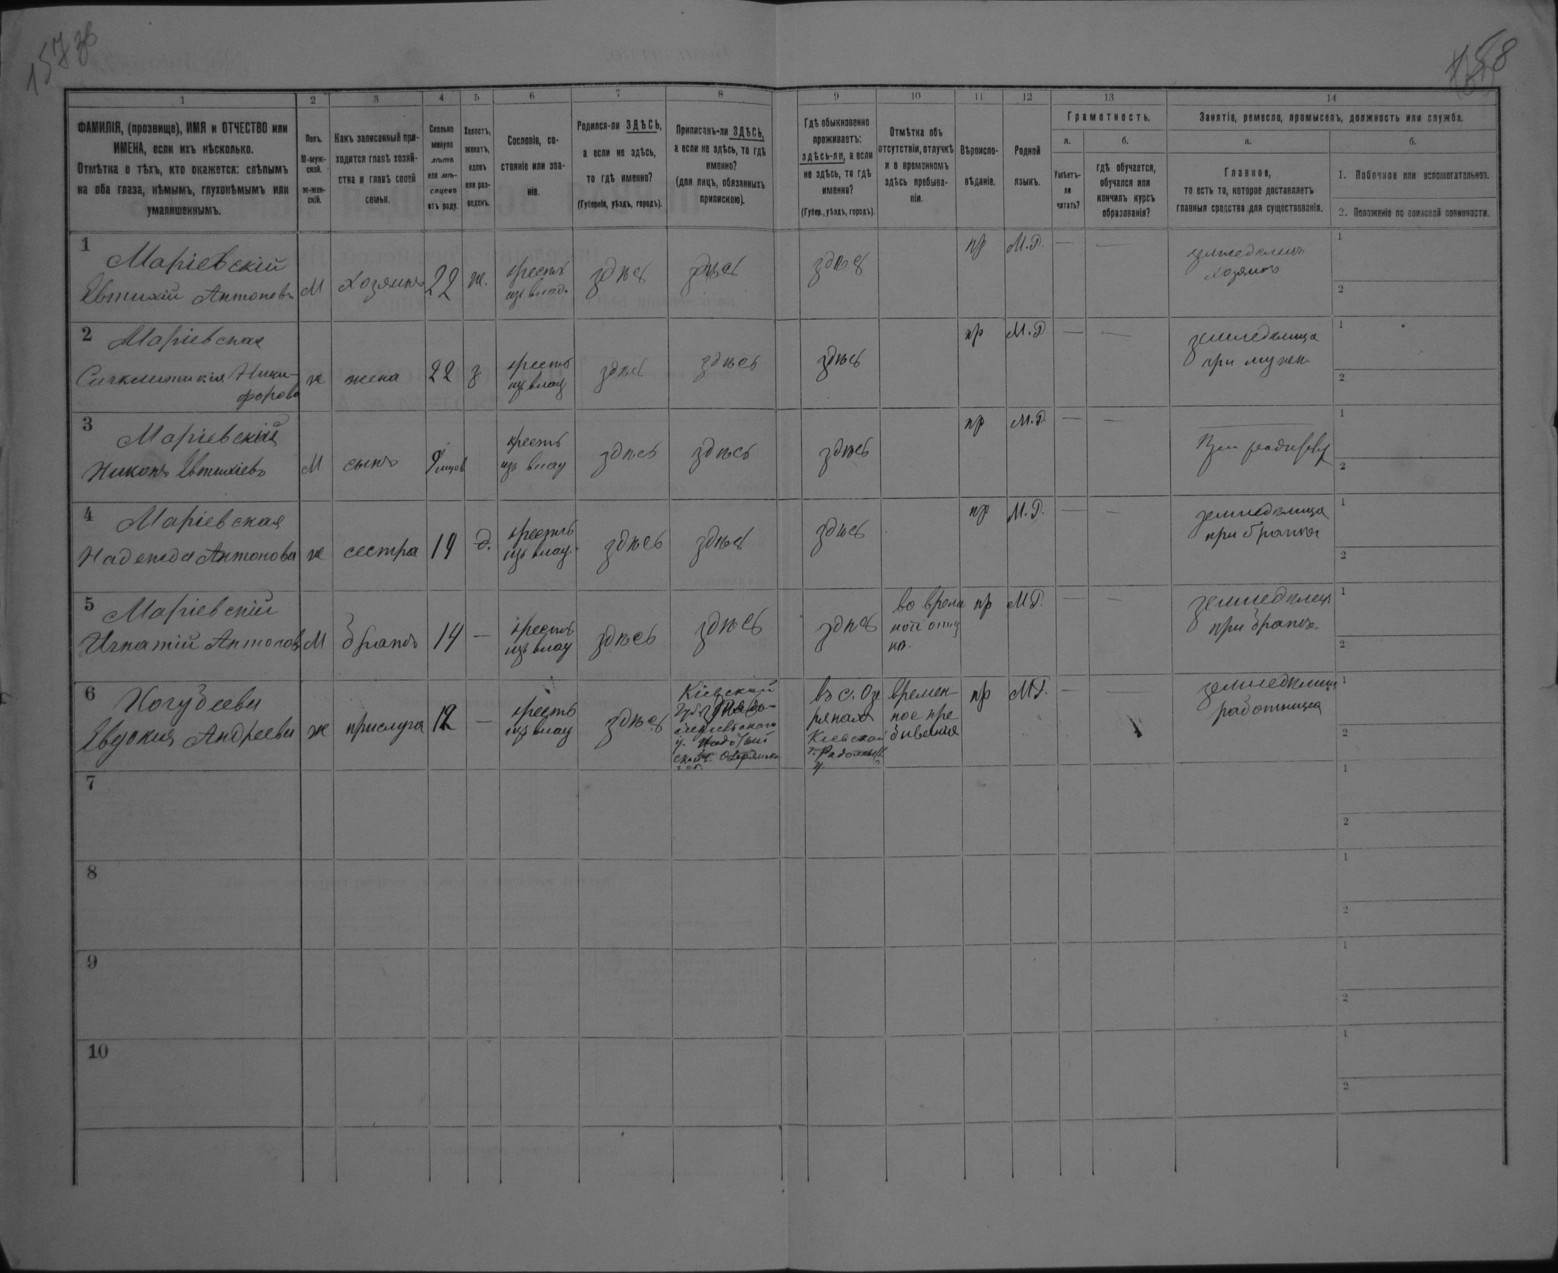 157 об
158
1
2
3
4
5
6
7
8
9
10
11
12
13
14
ФАМИЛІЯ, (прозвище), ИМЯ и ОТЧЕСТВО или
ИМЕНА, если ихъ нѣсколько.
Отмѣтка о тѣхъ, кто окажется: слѣпымъ
на оба глаза, нѣмымъ, глухонѣмымъ или
умалишеннымъ.
Полъ.
М-муж-
ской.
ж-жен-
скій.
Какъ записанный при-
ходится главѣ хозяй-
ства и главѣ своей
семьи.
Сколько
минуло
лѣтъ
или мѣ-
сяцевъ
отъ роду.
Холостъ,
женатъ,
вдовъ
или раз-
веденъ.
Сословіе, со-
стояніе или зва-
ніе.
Родился-ли ЗДѢСЬ,
а если не здѣсь,
то гдѣ именно?
(Губернія, уѣздъ, городъ).
Приписанъ-ли ЗДѢСЬ,
а если не здѣсь, то гдѣ
именно?
(для лицъ, обязанныхъ
припискою).
Гдѣ обыкновенно
проживаетъ:
здѣсь-ли, а если
не здѣсь, то гдѣ
именно?
(Губер., уѣздъ, городъ).
Отмѣтка объ
отсутствіи, отлучкѣ
и о временномъ
здѣсь пребыва-
ніи.
Вѣроиспо-
вѣданіе.
Родной
языкъ.
Грамотность.
а.
б.
Умѣетъ-
ли
читать?
гдѣ обучается,
обучался или
кончилъ курсъ
образованія?
Занятіе, ремесло, промыселъ, должность или служба.
а.
б.
Главное,
то есть то, которое доставляетъ
главныя средства для существованія.
1. Побочное или вспомогательное.
2. Положеніе по воинской повинности.
1
Маріевскій
Евтихій Антоновъ
М
хозяинъ
22
ж.
крестъ
изъ влад.
здѣсь
здѣсь
здѣсь
пр
М.Р.
—
—
земледѣлецъ
хозяинъ
1
2
2
Маріевская
Ники-
форова
ж
жена
22
з
крестъ
изъ влад
здѣсь
здѣсь
здѣсь
пр
М.Р
—
—
земледѣлица
при мужѣ
1
2
3
Маріевскій
Никонъ Евтихіевъ
М
сынъ
крестъ
изъ влад
здѣсь
здѣсь
здѣсь
пр
М.Р
—
—
1
2
4
Маріевская
Надежда Антонова
ж
сестра
19
д.
крестъ
изъ влад.
здѣсь
здѣсь
здѣсь
пр
М.Р.
—
—
земледѣлица
при братѣ
1
2
5
Маріевскій
Игнатій Антоновъ
М
братъ
14
—
крестъ
изъ влад
здѣсь
здѣсь
здѣсь
пр
М.Р.
—
—
земледѣлецъ
при братѣ
1
2
6
Евдокия Андреева
ж
прислуга
12
—
крестъ
изъ влад
здѣсь
Кіевской
въ с. Оз
Кіевской
времен-
ное пре
бываніе
пр
М.Р.
—
—
земледѣлица
работница
1
2
7
1
2
8
1
2
9
1
2
10
1
2